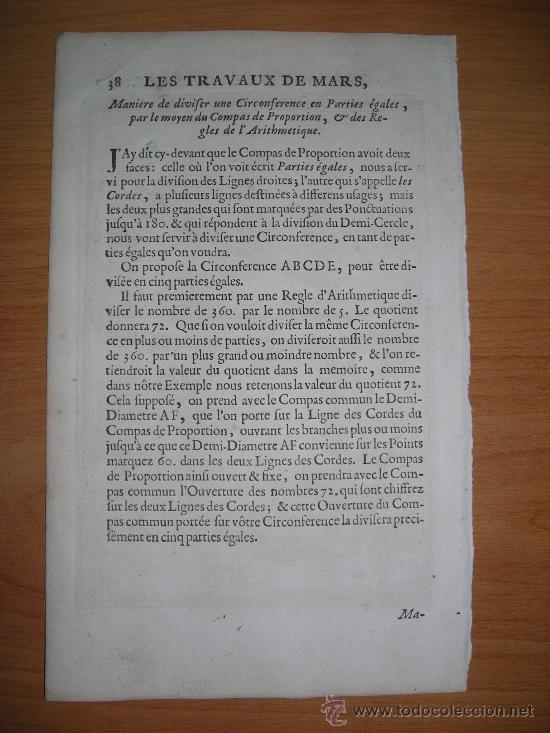 38 LES TRAVAUX DE MARS,
Maniere de diviſer une Circonference en Parties égales,
par le moyen du Compas de Proportion, & des Re-
gles de l'Arithmetique.
J'Ay dit cy-devant que le Compas de Proportion avoit deux
faces: celle où l'on voit écrit Parties égales, nous a ſer-
vi pour la diviſion des Lignes droites; l'autre qui s'appelle les
Cordes, a pluſieurs lignes deſtinées à differens uſages; mais
les deux plus grandes qui ſont marquées par des Ponctuations
juſqu'à 180. & qui répondent à la diviſion du Demi-Cercle,
nous vont ſervir à diviſer une Circonference, en tant de par-
ties égales qu'on voudra.
On propoſe la Circonference ABCDE, pour être di-
viſée en cinq parties égales.
Il faut premierement par une Regle d'Arithmetique di-
viſer le nombre de 360. par le nombre de 5. Le quotient
donnera 72. Que ſi on vouloit diviſer la même Circonferen-
ce en plus ou moins de parties, on diviſeroit auſſi le nombre
de 360. par un plus grand ou moindre nombre, & l'on re-
tiendroit la valeur du quotient dans la memoire, comme
dans nôtre Exemple nous retenons la valeur du quotient 72.
Cela ſuppoſé, on prend avec le Compas commun le Demi-
Diametre AF, que l'on porte ſur la Ligne des Cordes du
Compas de Proportion, ouvrant les branches plus ou moins
juſqu'à ce que ce Demi-Diametre AF convienne ſur les Points
marquez 60. dans les deux Lignes des Cordes. Le Compas
de Proportion ainſi ouvert & fixe, on prendra avec le Com-
pas commun l'Ouverture des nombres 72. qui ſont chiffrez
ſur les deux Lignes des Cordes; & cette Ouverture du Com-
pas commun portée ſur vôtre Circonference la diviſera preci-
ſément en cinq parties égales.
Ma-
www.todocoleccion.net